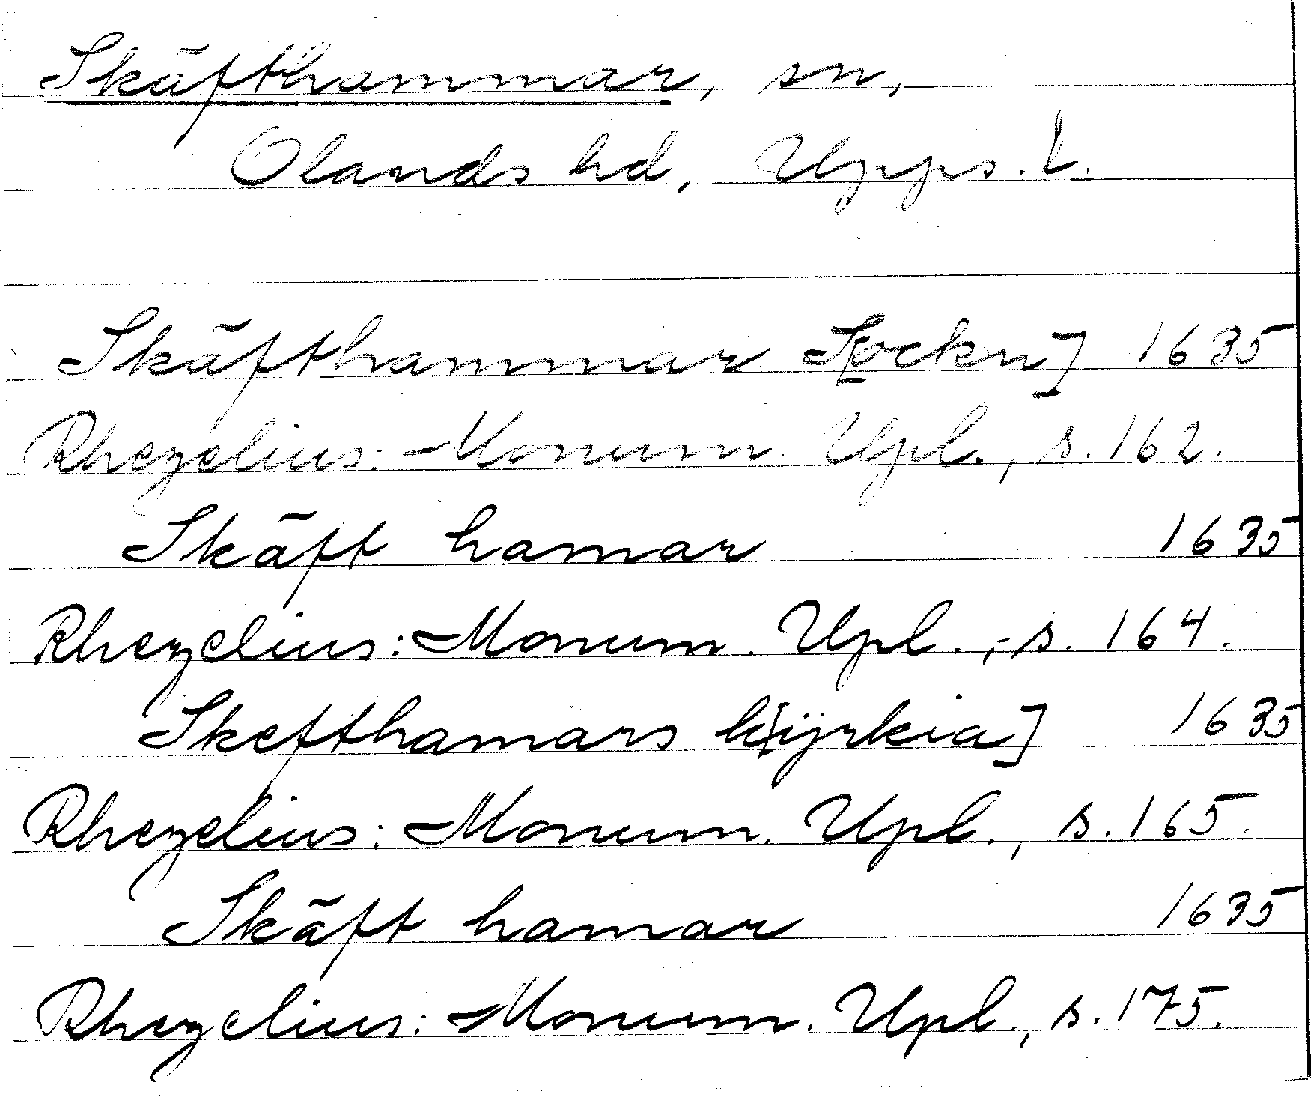 Skäfthammar, sn,
Olands hd, Upps. l.
Skäfthammar S[ockn] 1635
Rhezelius: Monum. Upl., s. 162.
Skäft hamar 1635
Rhezelius: Monum. Upl., s. 164.
Skefthamars k[ijrkia] 1635
Rhezelius: Monum. Upl., s. 165.
Skäft hamar 1635
Rhezelius: Monum. Upl., s. 175.